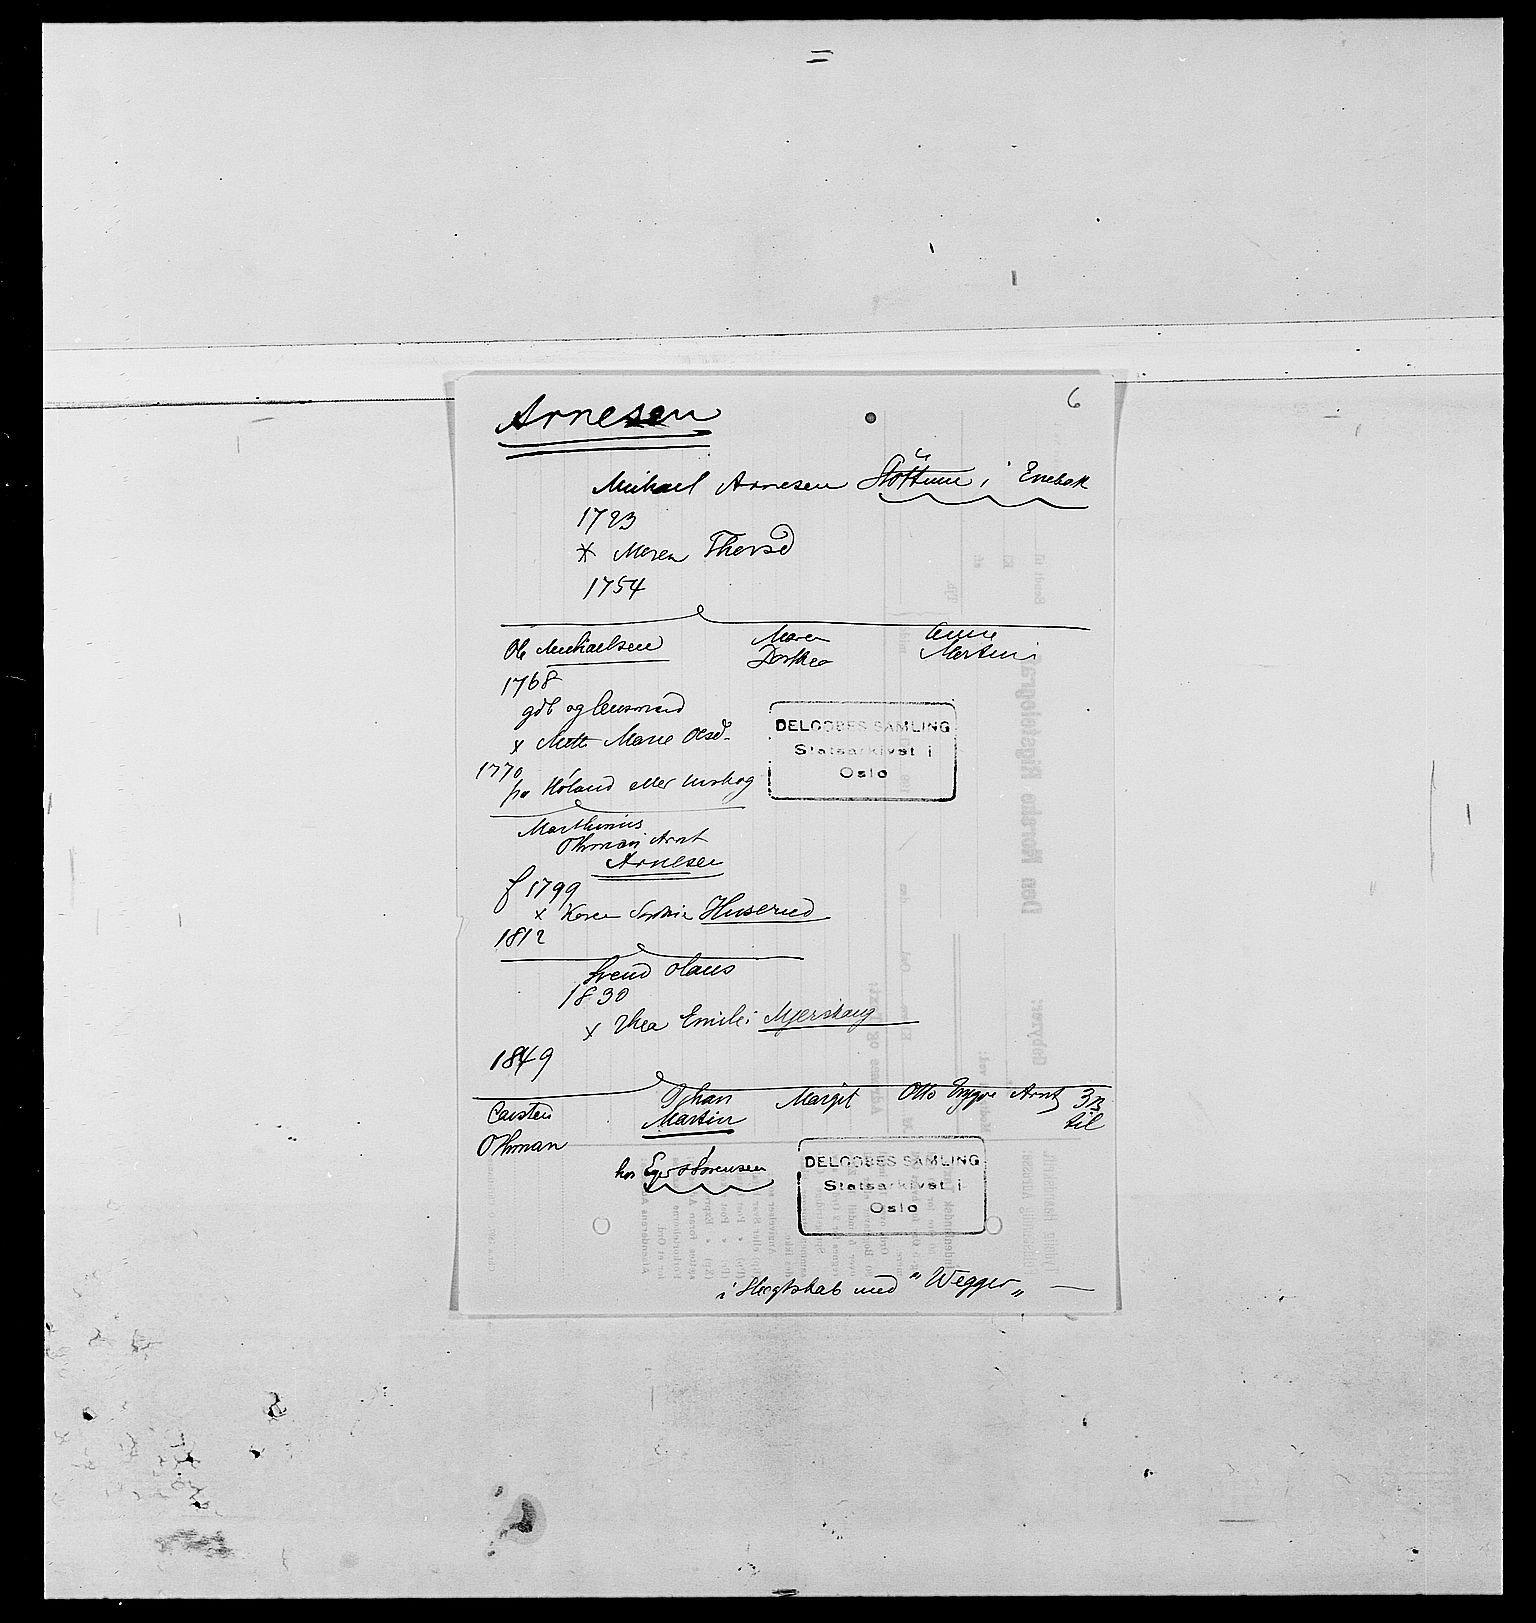 6
Arnesen
Michael Arnesen Støttum i Enebak
1723
x Maren Thorsd
1754
Ole Michaelsen Maren Anne
Dorthea Martini
1768
gdb og lensmand
x Mette Marie Olsd.
1770
fra Høland eller Urskog
Marthinius
Othman Arnt
Arnesen
f 1799
x Karen Sophie Huserud
1812
Svend Olaus
1830
x Thea Emilie Mjerskaug
1849
Carsten Johan Margit Otto Yngve Arnt 3 B
Othman Martin til
hos Eger &
DELGOBES SAMLING
Statsarkivet i
Oslo
DELGOBES SAMLING
Statsarkivet i
Oslo
i Slegtskab med "Wegger" —